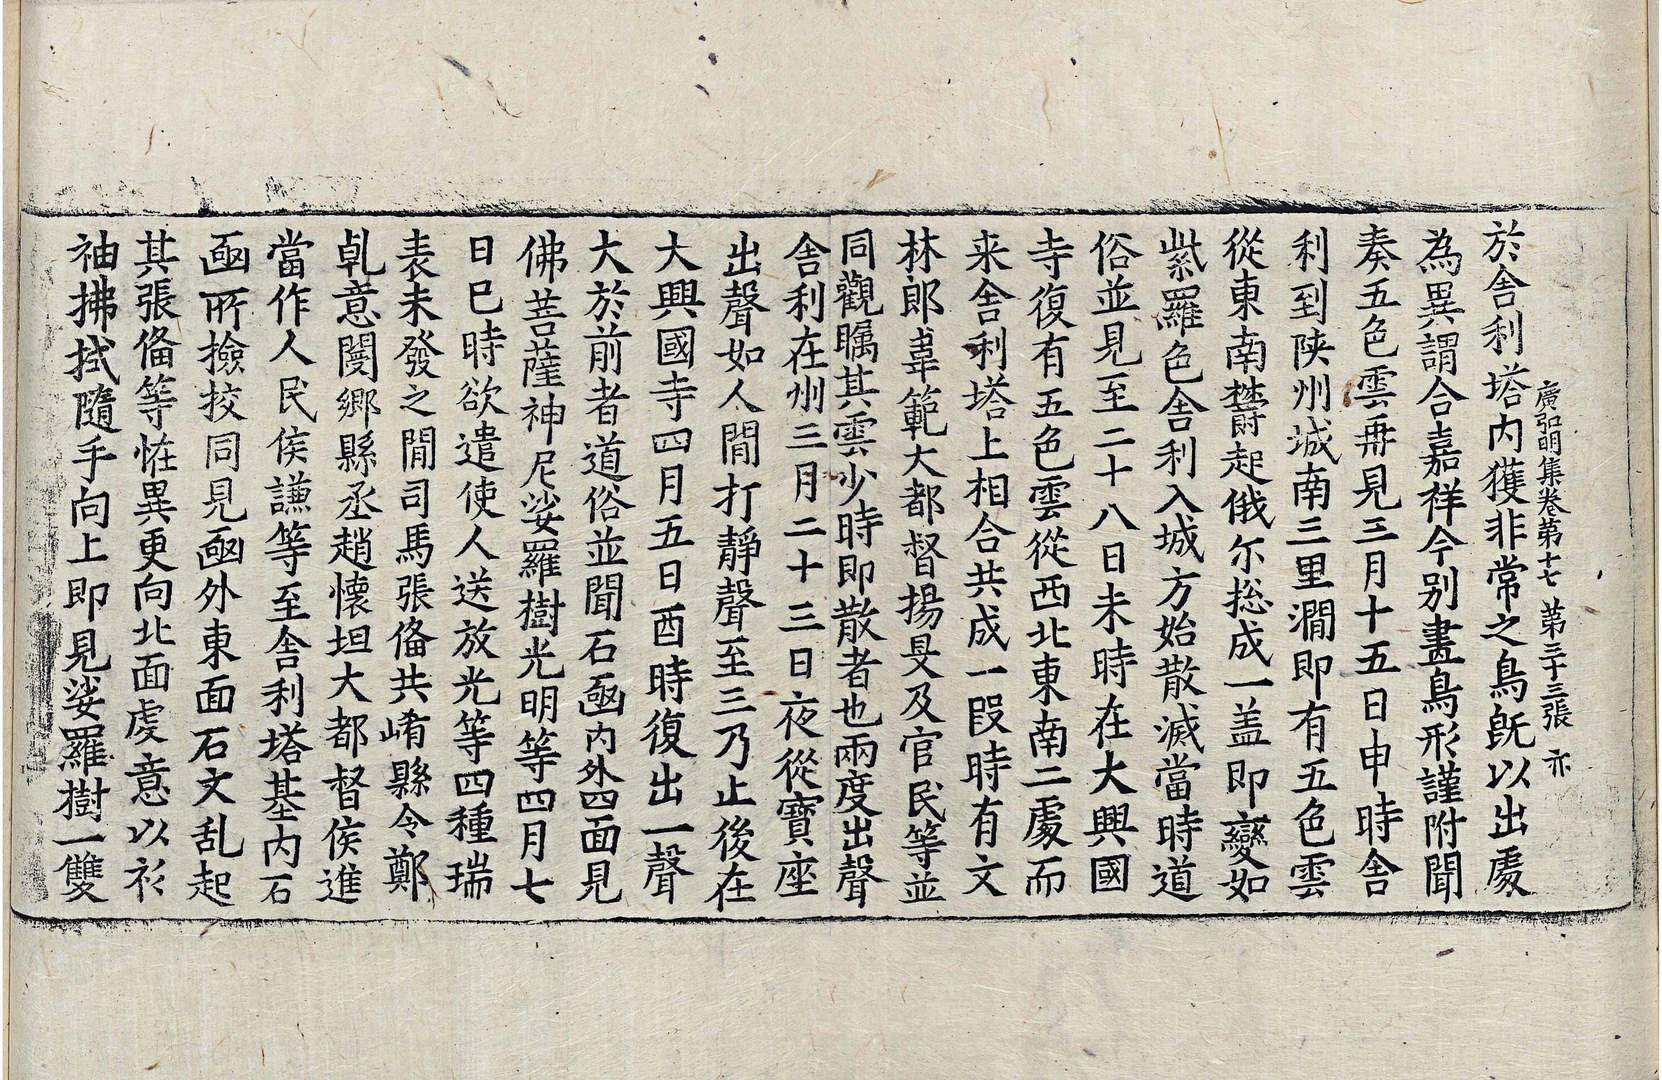 廣弘明集卷第十七 第三十三張 亦
於舍利塔内獲非常之鳥旣以出處
為異謂合嘉祥今別畫鳥形謹附聞
奏五色雲再見三月十五日申時舍
利到陝州城南三里澗即有五色雲
從東南欝起俄尓捴成一盖即變如
紫羅色舍利入城方始散滅當時道
俗並見至二十八日未時在大興國
寺復有五色雲從西北東南二處而
来舍利塔上相合共成一段時有文
林郎韋範大都督揚旻及官民等並
同觀瞩其雲少時即散者也兩度出聲
舍利在州三月二十三日夜從寶座
出聲如人間打靜聲至三乃止後在
大興國寺四月五日酉時復出一聲
大於前者道俗並聞石凾内外四面見
佛菩薩神尼娑羅樹光明等四月七
日巳時欲遣使人送放光等四種瑞
表未發之間司馬張俻共崤縣令鄭
乹意閿鄉縣丞趙懷坦大都督侯進
當作人民侯謙等至舍利塔基内石
凾所撿挍同見凾外東面石文乱起
其張俻等恠異更向北面虔意以衫
袖拂拭隨手向上即見娑羅樹一雙